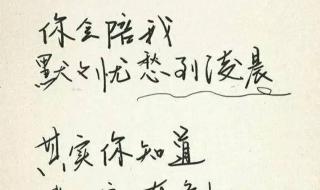 你会陪我
默々忧愁到凌晨
其实你知道